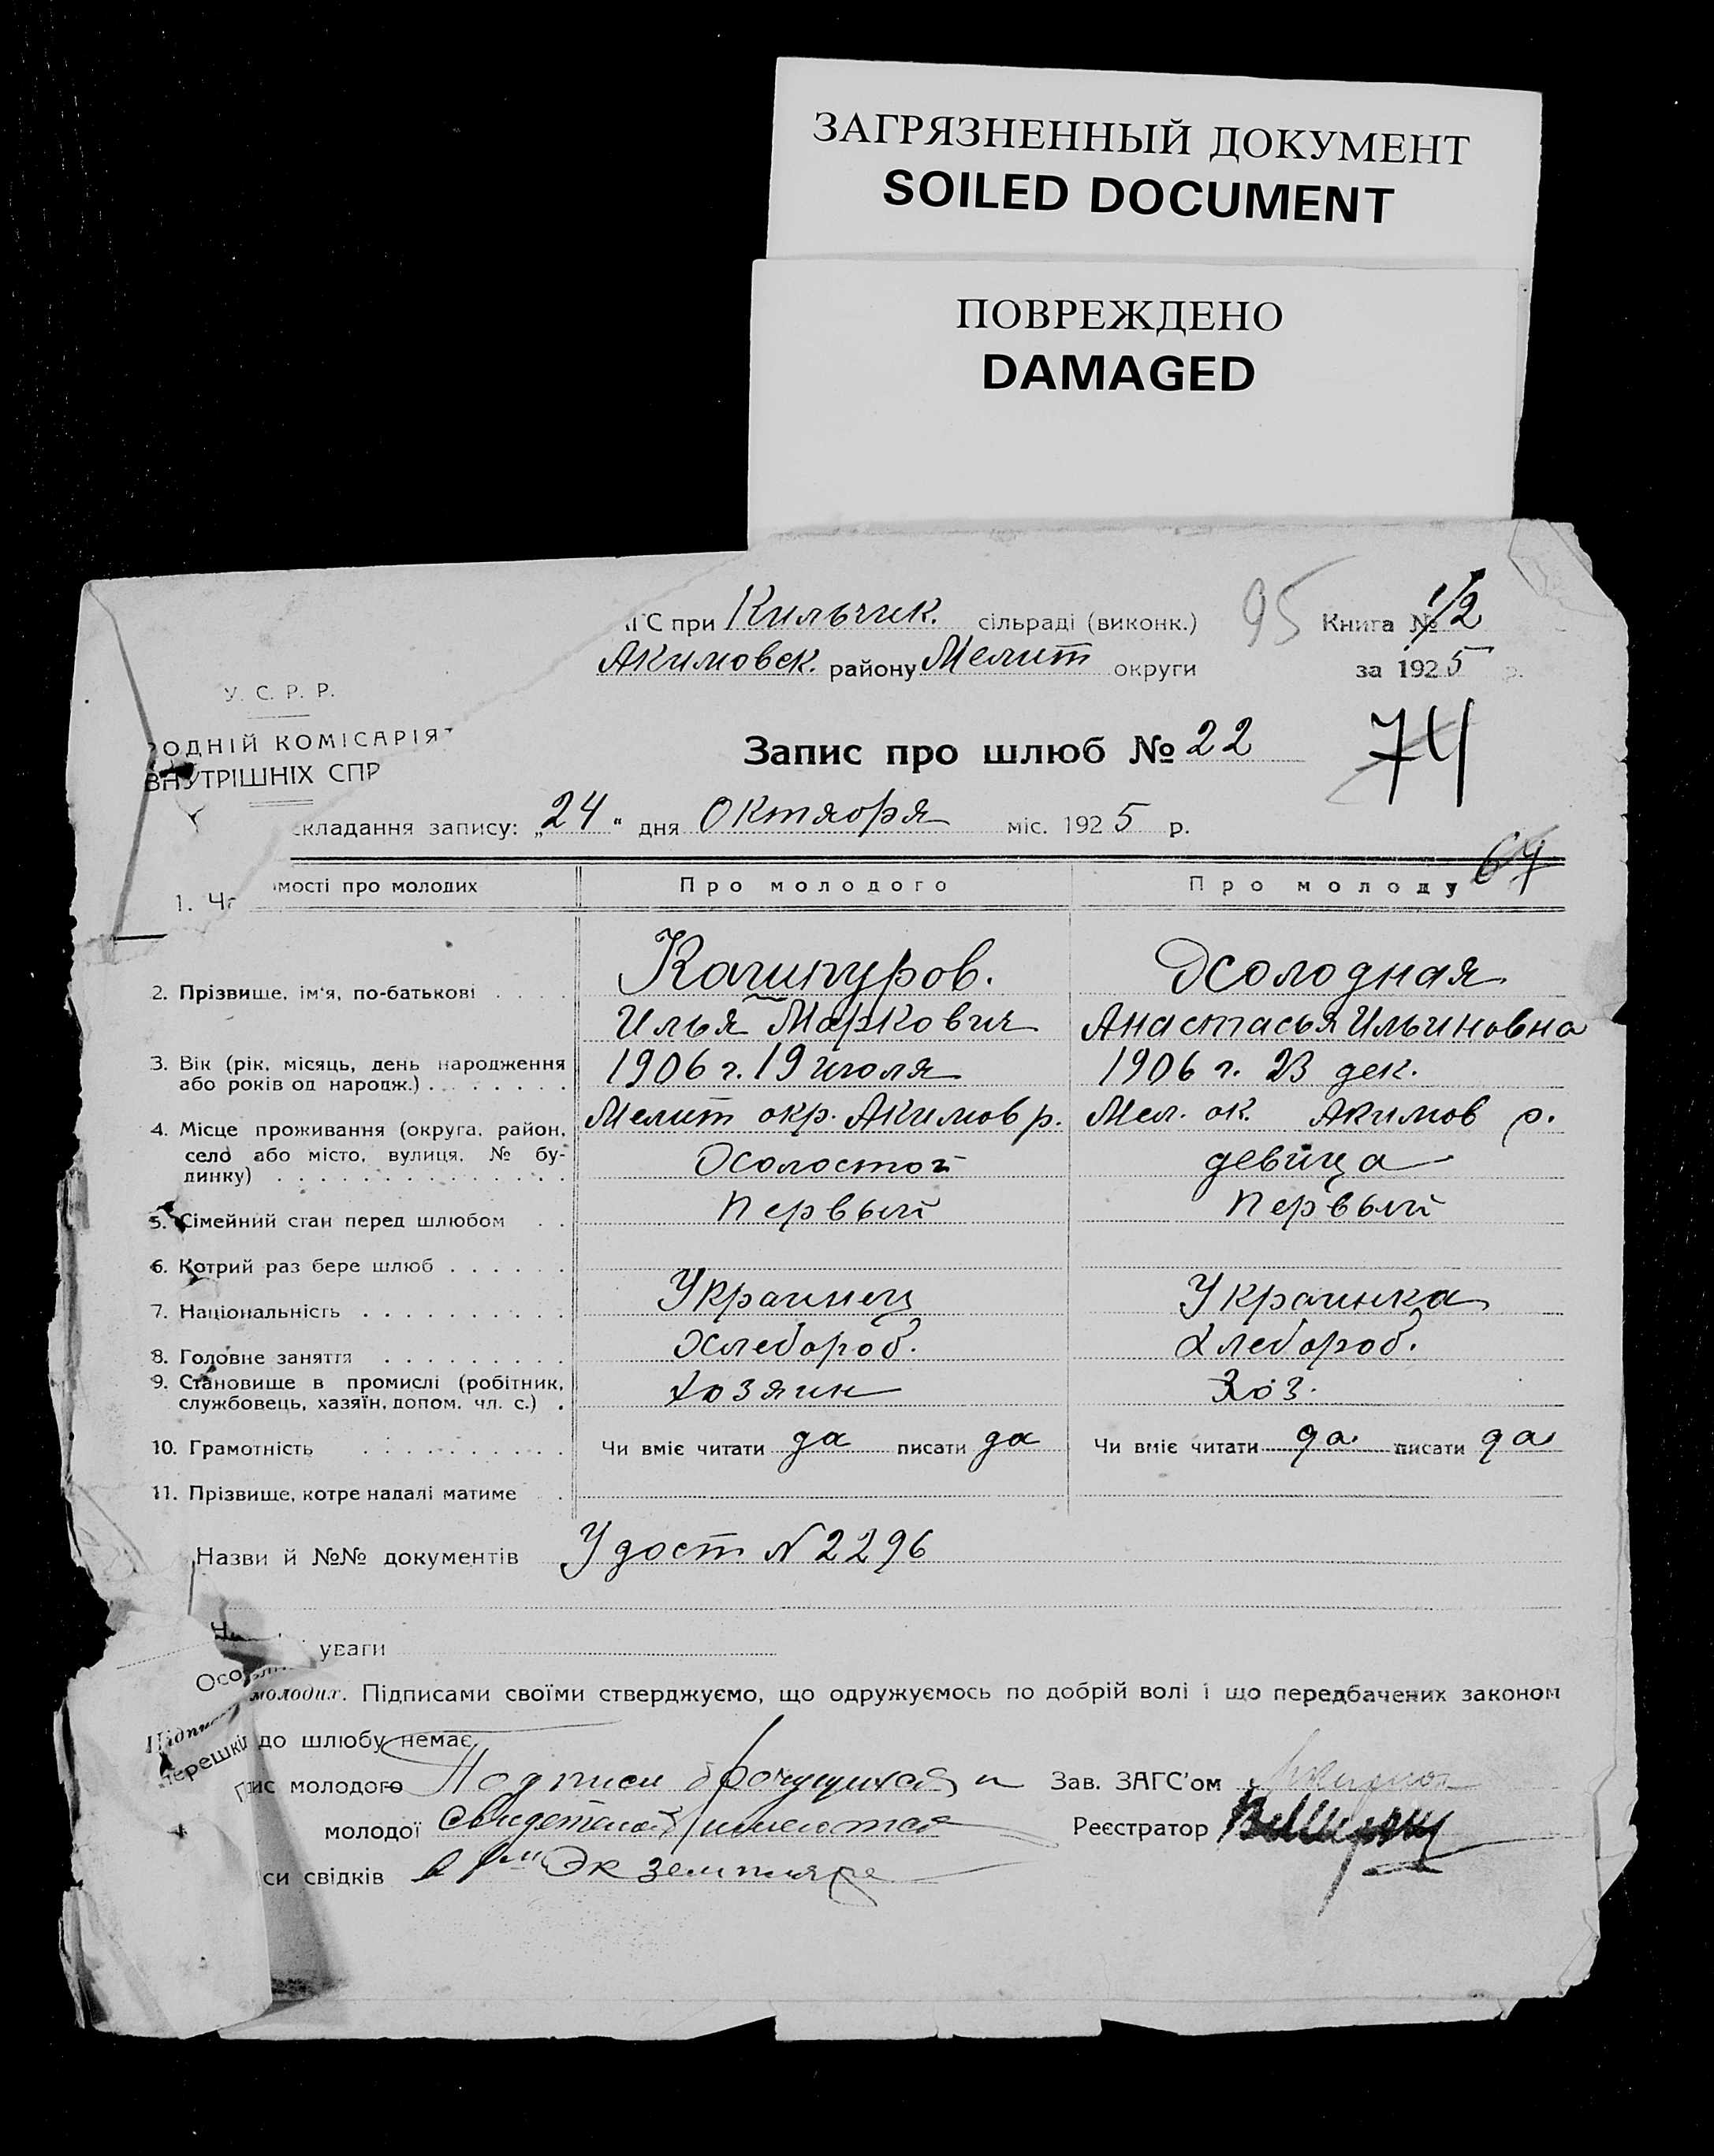 ЗАГРЯЗНЕННЫЙ ДОКУМЕНТ
SOILED DOCUMENT
ПОВРЕЖДЕНО
DAMAGED
ГС при Кильчик. сільраді (виконк.) 95 Книга № 1/2
Акимовск. району Мелит округи за 1925 р.
У. С. Р. Р.
ОДНІЙ КОМІСАРІЯТ
ВНУТРІШНІХ СПР
Запис про шлюб № 22 74
складання запису: „24" дня Октября міс. 1925 р.
67
1. Ч
мості про молодих Про молодого Про молоду
2. Прізвище, ім'я, по-батькові Кашпуров. Холодная
Илья Маркович Анастасья Ильиновна
3. Вік (рік, місяць, день народження або років од народж.) 1906 г. 19 июля 1906 г. 23 дек.
4. Місце проживання (округа, район, село або місто, вулиця, № будинку) Мелит окр. Акимов р. Мел. ок. Акимов р.
Холостой девица
5. Сімейний стан перед шлюбом Первый Первый
6. Котрий раз бере шлюб
7. Національність Украинец Украинка
8. Головне заняття Хлебороб. Хлебороб.
9. Становище в промислі (робітник, службовець, хазяїн, допом. чл. с.) Хозяин Хоз.
10. Грамотність Чи вміє читати да писати да Чи вміє читати да писати да
11. Прізвище, котре надалі матиме
Назви й №№ документів Удост N 2296
Особли уваги
Підпис молодих. Підписами своїми стверджуємо, що одружуємось по добрій волі і що передбачених законом
перешкі до шлюбу немає
пис молодого Подписи брачущихся и Зав. ЗАГС'ом
молодої свидетелей имеются Реєстратор
си свідків в 1м Экземпляре